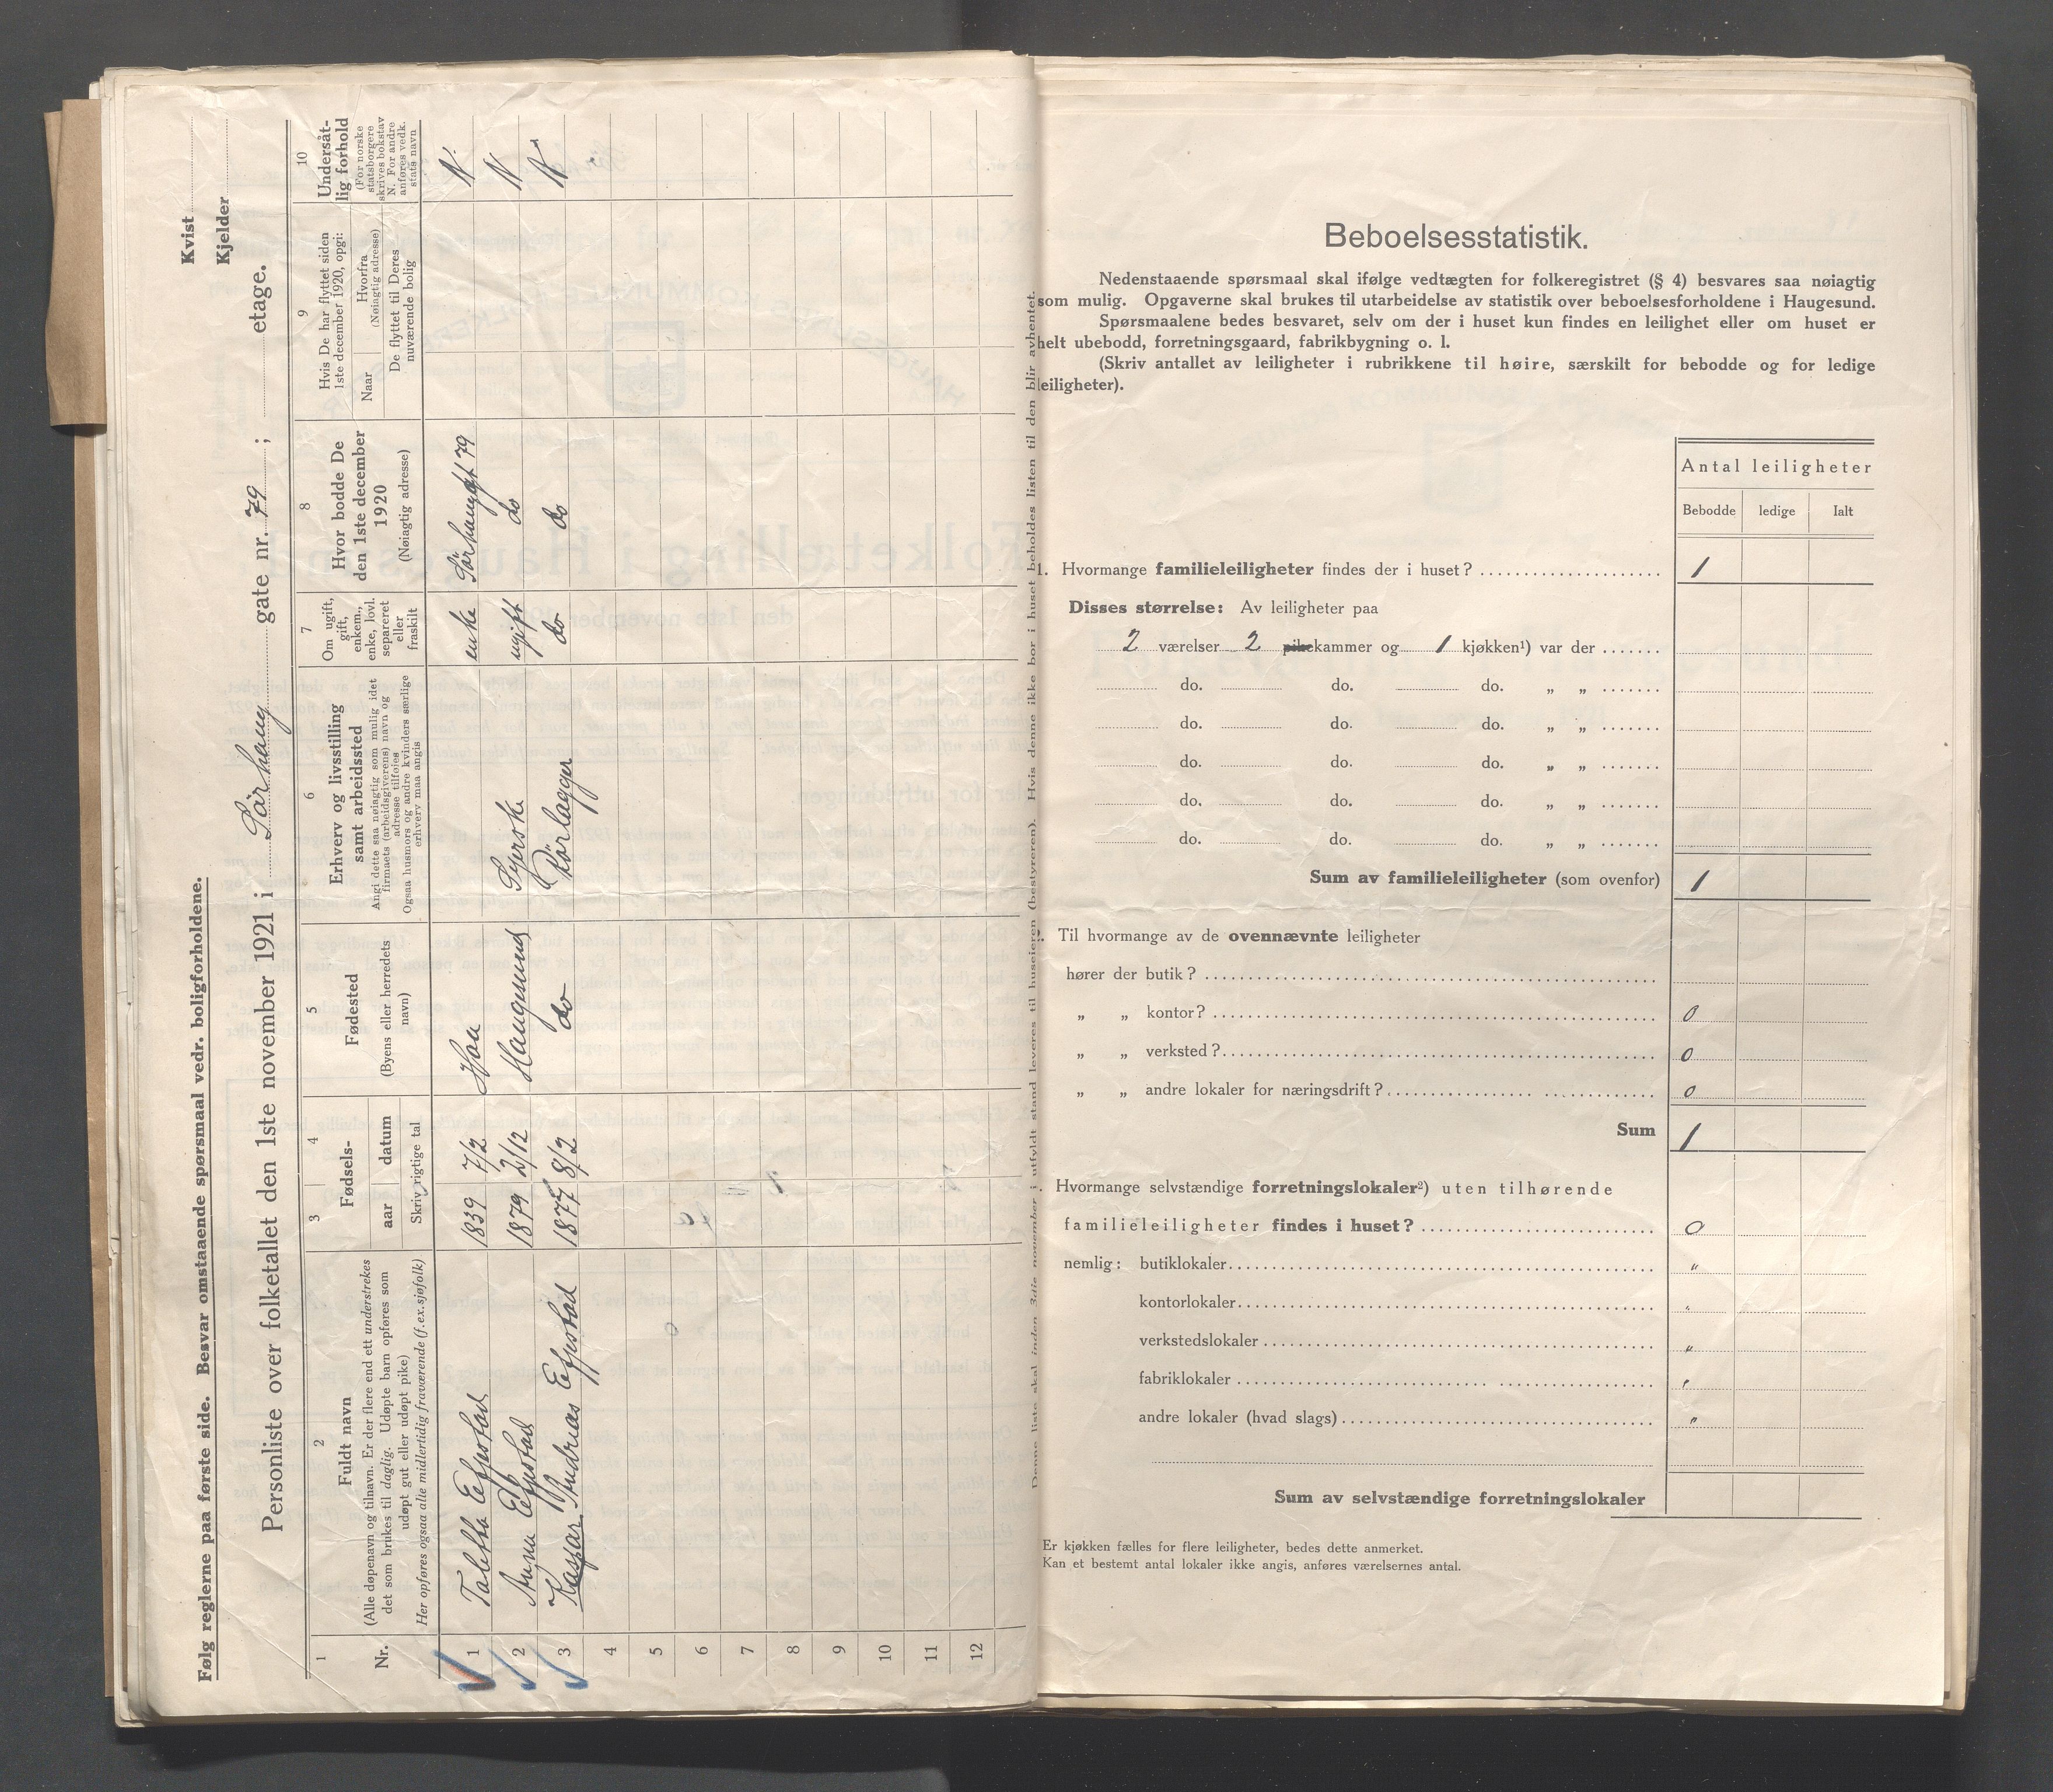 Følg reglerne paa første side. Besvar omstaaende spørsmaal vedr. boligforholdene.
Kvist
Kjelder
Personliste over folketallet den 1ste november 1921 i Sørhaug gate nr. 79 ; etage.
1
Nr.
2
Fuldt navn
(Alle døpenavn og tilnavn. Er der flere end ett understrekes
det som brukes til daglig. Udøpte barn opføres som
udøpt gut eller udøpt pike)
Her opføres ogsaa alle midlertidig fraværende (f.ex. sjøfolk)
3 4
Fødsels-
aar datum
Skriv rigtige tal
5
Fødested
(Byens eller herredets
navn)
6
Erhverv og livsstilling
samt arbeidssted
Angi dette saa nøiagtig som mulig idet
firmaets (arbeidsgiverens) navn og
adresse tilføies
Ogsaa husmors og andre kvinders særlige
erhverv maa angis
7
Om ugift,
gift,
enkem.,
enke, lovl.
separeret
eller
fraskilt
8
Hvor bodde De
den 1ste december
1920
(Nøiagtig adresse)
9
Hvis De har flyttet siden
1ste december 1920, opgi:
Naar
Hvorfra
(Nøiagtig adresse)
De flyttet til Deres
nuværende bolig
10
Undersåt-
lig forhold
(For norske
statsborgere
skrives bokstav
N. For andre
anføres vedk.
stats navn
1 Taletta Eppestad 1839 7/2 enke Sørhauggt 79 N.
2 Anna 1879 2/12 Haugesund Syerske ugift do N
3 Kaspar Andreas 1877 8/2 do Rørlægger do do N
4
5
6
7
8
9
10
11
12
Denne liste skal inden 3die november i utfyldt stand leveres til huseieren (bestyreren). Hvis denne ikke bor i huset beholdes listen til den blir avhentet.
Beboelsesstatistik.
Nedenstaaende spørsmaal skal ifølge vedtægten for folkeregistret (§ 4) besvares saa nøiagtig
som mulig. Opgaverne skal brukes til utarbeidelse av statistik over beboelsesforholdene i Haugesund.
Spørsmaalene bedes besvaret, selv om der i huset kun findes en leilighet eller om huset er
helt ubebodd, forretningsgaard, fabrikbygning o. l.
(Skriv antallet av leiligheter i rubrikkene til høire, særskilt for bebodde og for ledige
leiligheter).
Antal leiligheter
Bebodde ledige Ialt
1. Hvormange familieleiligheter findes der i huset? 1
Disses størrelse: Av leiligheter paa
2 værelser 2 pikekammer og 1 kjøkken¹) var der
do. do. do. „ „
do. do. do. „ „
do. do. do. „ „
do. do. do. „ „
do. do. do. „ „
Sum av familieleiligheter (som ovenfor) 1
Til hvormange av de ovennævnte leiligheter
hører der butik?
„ „ kontor? 0
„ „ verksted? 0
„ „ andre lokaler for næringsdrift? 0
Sum 1
Hvormange selvstændige forretningslokaler²) uten tilhørende
familieleiligheter findes i huset? 0
nemlig: butiklokaler "
kontorlokaler "
verkstedslokaler "
fabriklokaler "
andre lokaler (hvad slags) "
Sum av selvstændige forretningslokaler
Er kjøkken fælles for flere leiligheter, bedes dette anmerket.
Kan et bestemt antal lokaler ikke angis, anføres værelsernes antal.